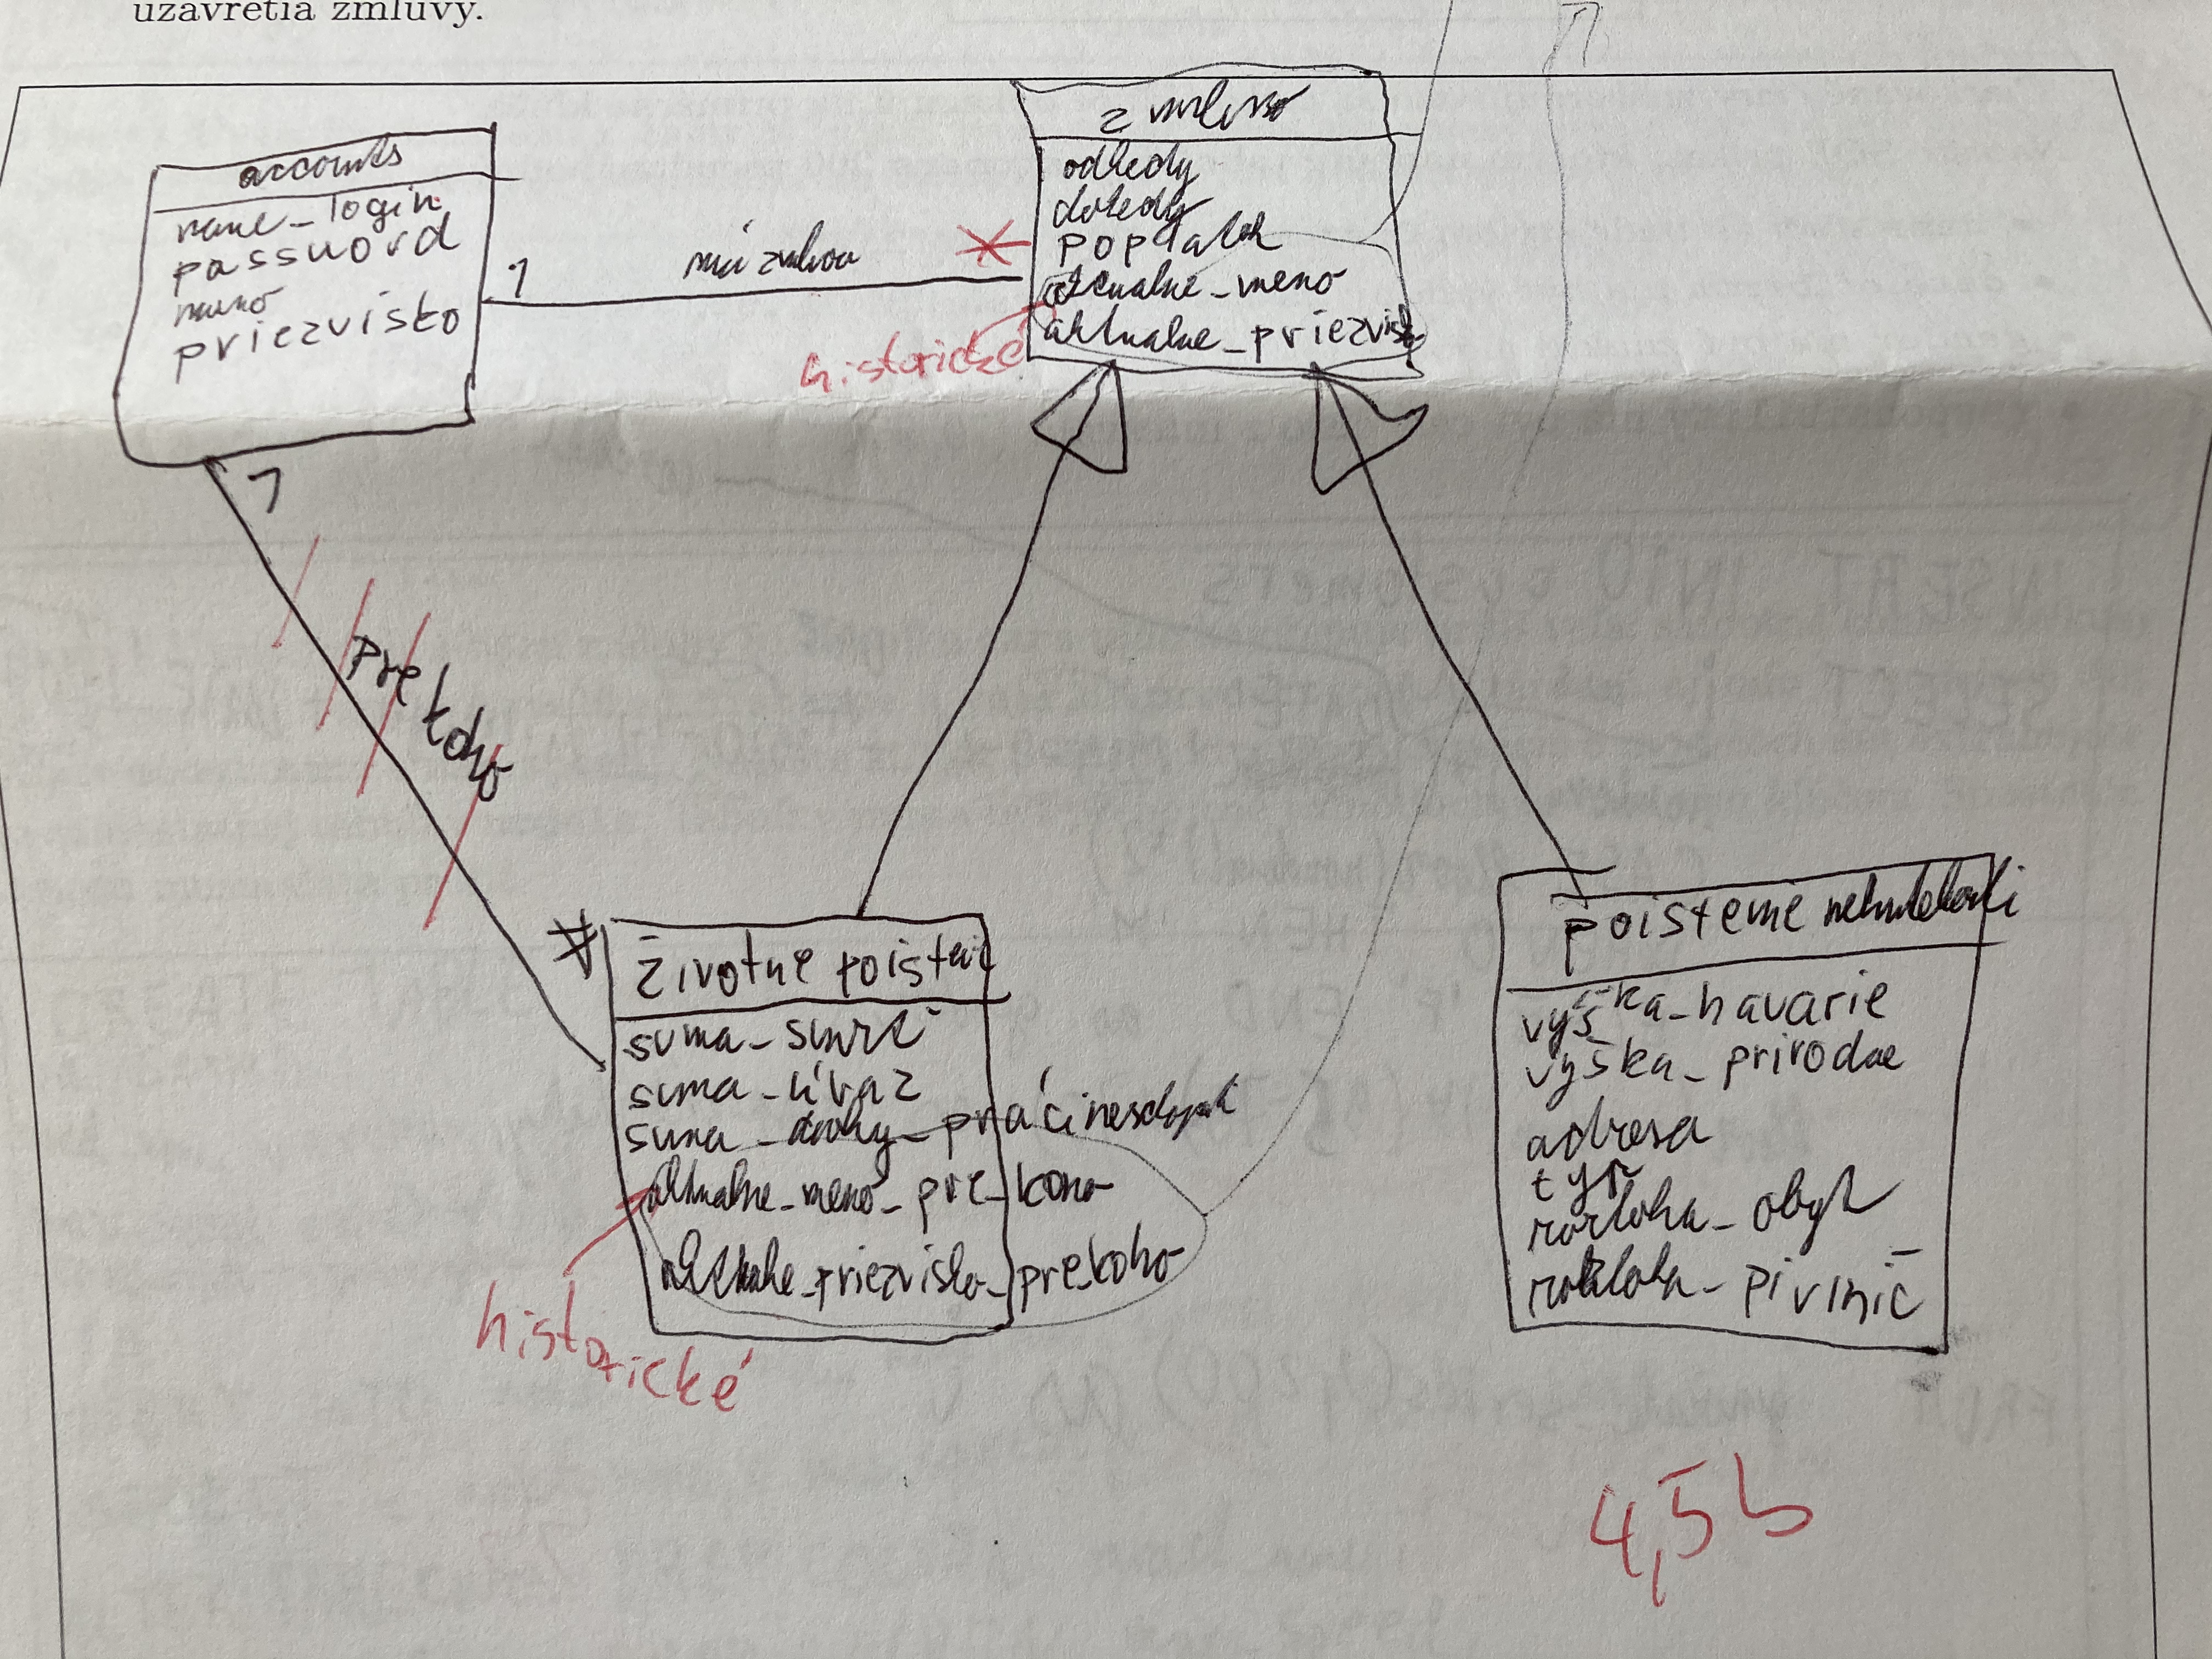 uzavretia zmluvy.
accounts
name-login
password
meno
priezvisko
1
má zmluvu
*
zmluva
odkedy
dokedy
aktualne-meno
aktualne-priezvisko
1
pre koho
*
životne poisteni
suma-smrť
suma-úraz
suma-
aktualne-meno-pre-koho
aktualne-priezvisko-prekoho
historické
poistenie nehnutelnosti
výška-havarie
výška-prirodne
adresa
typ
rozloha-obyt
rozloha-pivnič
4,5b